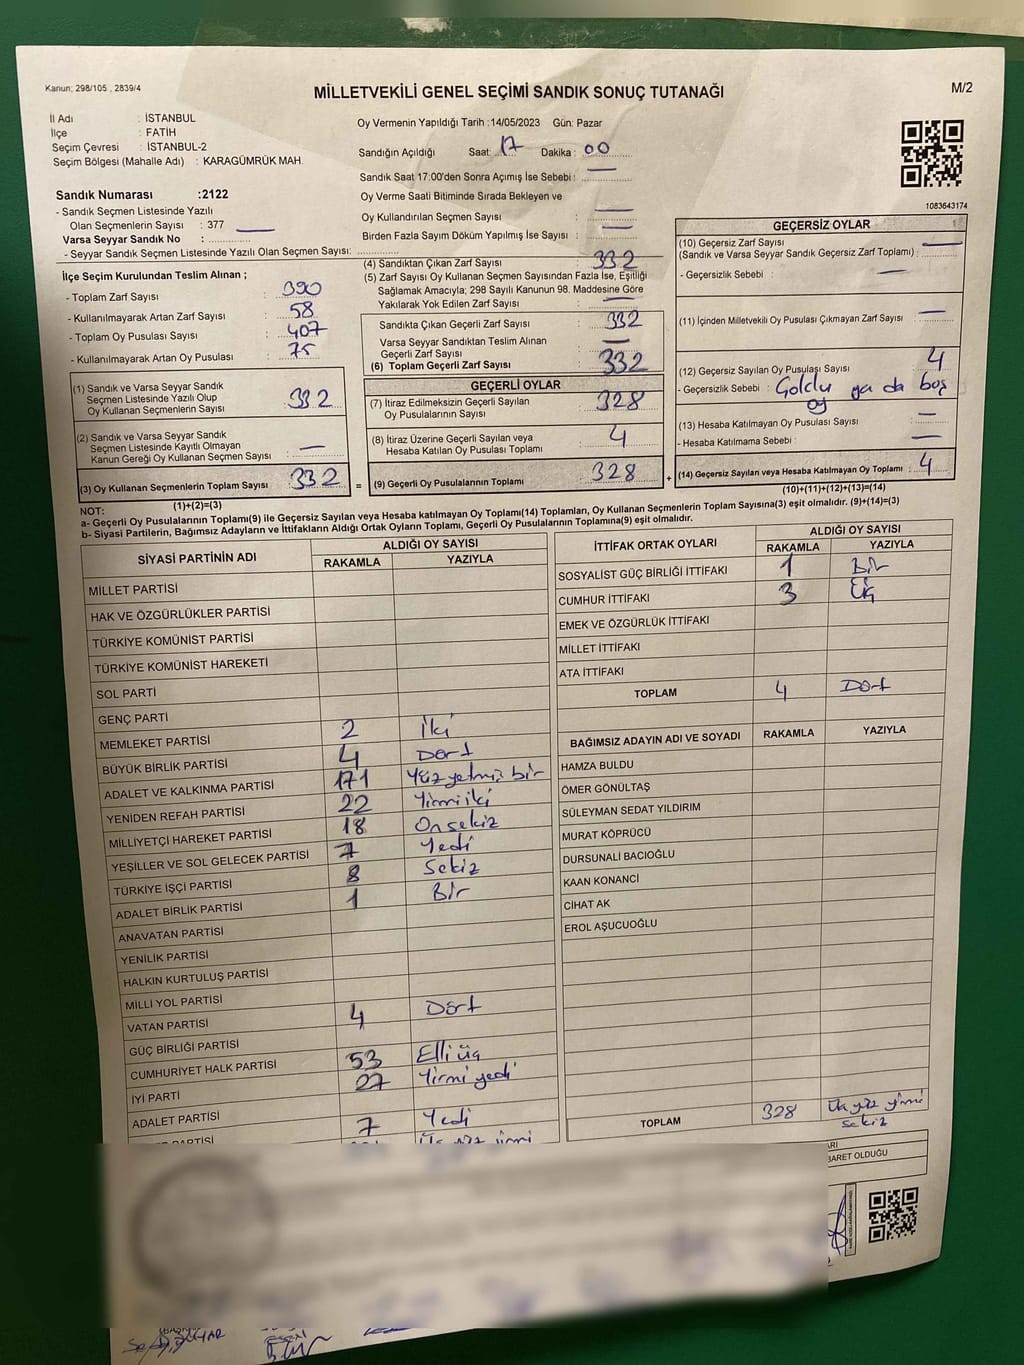 Kanun; 298/105 , 2839/4
MİLLETVEKİLİ GENEL SEÇİMİ SANDIK SONUÇ TUTANAĞI
M/2
İl Adı : İSTANBUL
İlçe : FATİH
Seçim Çevresi : İSTANBUL-2
Seçim Bölgesi (Mahalle Adı) : KARAGÜMRÜK MAH.
Oy Vermenin Yapıldığı Tarih :14/05/2023 Gün: Pazar
Sandığın Açıldığı Saat: 17 Dakika : 00
Sandık Saat 17:00'den Sonra Açımış İse Sebebi : —
Oy Verme Saati Bitiminde Sırada Bekleyen ve
Oy Kullandırılan Seçmen Sayısı : —
Birden Fazla Sayım Döküm Yapılmış İse Sayısı : —
1083643174
Sandık Numarası :2122
- Sandık Seçmen Listesinde Yazılı
Olan Seçmenlerin Sayısı : 377 —
Varsa Seyyar Sandık No :
- Seyyar Sandık Seçmen Listesinde Yazılı Olan Seçmen Sayısı:
İlçe Seçim Kurulundan Teslim Alınan ;
- Toplam Zarf Sayısı : 390
- Kullanılmayarak Artan Zarf Sayısı : 58
- Toplam Oy Pusulası Sayısı : 407
- Kullanılmayarak Artan Oy Pusulası : 75
(1) Sandık ve Varsa Seyyar Sandık
Seçmen Listesinde Yazılı Olup
Oy Kullanan Seçmenlerin Sayısı : 332
(2) Sandık ve Varsa Seyyar Sandık
Seçmen Listesinde Kayıtlı Olmayan
Kanun Gereği Oy Kullanan Seçmen Sayısı : —
(3) Oy Kullanan Seçmenlerin Toplam Sayısı : 332 =
(1)+(2)=(3)
(4) Sandıktan Çıkan Zarf Sayısı : 332
(5) Zarf Sayısı Oy Kullanan Seçmen Sayısından Fazla İse, Eşitliği
Sağlamak Amacıyla; 298 Sayılı Kanunun 98. Maddesine Göre
Yakılarak Yok Edilen Zarf Sayısı : —
Sandıkta Çıkan Geçerli Zarf Sayısı : 332
Varsa Seyyar Sandıktan Teslim Alınan
Geçerli Zarf Sayısı : —
(6) Toplam Geçerli Zarf Sayısı : 332
GEÇERLİ OYLAR
(7) İtiraz Edilmeksizin Geçerli Sayılan
Oy Pusulalarının Sayısı : 328
(8) İtiraz Üzerine Geçerli Sayılan veya
Hesaba Katılan Oy Pusulası Toplamı : 4
(9) Geçerli Oy Pusulalarının Toplamı : 328 +
GEÇERSİZ OYLAR
(10) Geçersiz Zarf Sayısı
(Sandık ve Varsa Seyyar Sandık Geçersiz Zarf Toplamı) : —
- Geçersizlik Sebebi : —
(11) İçinden Milletvekili Oy Pusulası Çıkmayan Zarf Sayısı : —
(12) Geçersiz Sayılan Oy Pusulası Sayısı : 4
- Geçersizlik Sebebi : ya da boş
oy
(13) Hesaba Katılmayan Oy Pusulası Sayısı : —
- Hesaba Katılmama Sebebi : —
(14) Geçersiz Sayılan veya Hesaba Katılmayan Oy Toplamı : 4
(10)+(11)+(12)+(13)=(14)
NOT:
a- Geçerli Oy Pusulalarının Toplamı(9) ile Geçersiz Sayılan veya Hesaba katılmayan Oy Toplamı(14) Toplamları, Oy Kullanan Seçmenlerin Toplam Sayısına(3) eşit olmalıdır. (9)+(14)=(3)
b- Siyasi Partilerin, Bağımsız Adayların ve İttifakların Aldığı Ortak Oyların Toplamı, Geçerli Oy Pusulalarının Toplamına(9) eşit olmalıdır.
SİYASİ PARTİNİN ADI
ALDIĞI OY SAYISI
RAKAMLA YAZIYLA
MİLLET PARTİSİ
HAK VE ÖZGÜRLÜKLER PARTİSİ
TÜRKİYE KOMÜNİST PARTİSİ
TÜRKİYE KOMÜNİST HAREKETİ
SOL PARTİ
GENÇ PARTİ
MEMLEKET PARTİSİ 2 İki
BÜYÜK BİRLİK PARTİSİ 4 Dört
ADALET VE KALKINMA PARTİSİ 171 Yüz yetmiş bir
YENİDEN REFAH PARTİSİ 22 Yirmi iki
MİLLİYETÇİ HAREKET PARTİSİ 18 On sekiz
YEŞİLLER VE SOL GELECEK PARTİSİ 7 Yedi
TÜRKİYE İŞÇİ PARTİSİ 8 Sekiz
ADALET BİRLİK PARTİSİ 1 Bir
ANAVATAN PARTİSİ
YENİLİK PARTİSİ
HALKIN KURTULUŞ PARTİSİ
MİLLİ YOL PARTİSİ
VATAN PARTİSİ 4 Dört
GÜÇ BİRLİĞİ PARTİSİ
CUMHURİYET HALK PARTİSİ 53 Elli üç
İYİ PARTİ 27 Yirmi yedi
ADALET PARTİSİ 7 Yedi
PARTİSİ
İTTİFAK ORTAK OYLARI
ALDIĞI OY SAYISI
RAKAMLA YAZIYLA
SOSYALİST GÜÇ BİRLİĞİ İTTİFAKI 1 Bir
CUMHUR İTTİFAKI 3 Üç
EMEK VE ÖZGÜRLÜK İTTİFAKI
MİLLET İTTİFAKI
ATA İTTİFAKI
TOPLAM 4 Dört
BAĞIMSIZ ADAYIN ADI VE SOYADI RAKAMLA YAZIYLA
HAMZA BULDU
ÖMER GÖNÜLTAŞ
SÜLEYMAN SEDAT YILDIRIM
MURAT KÖPRÜCÜ
DURSUNALİ BACIOĞLU
KAAN KONANCİ
CİHAT AK
EROL AŞUCUOĞLU
TOPLAM 328 Üç yüz yirmi
sekiz
BARET OLDUĞU